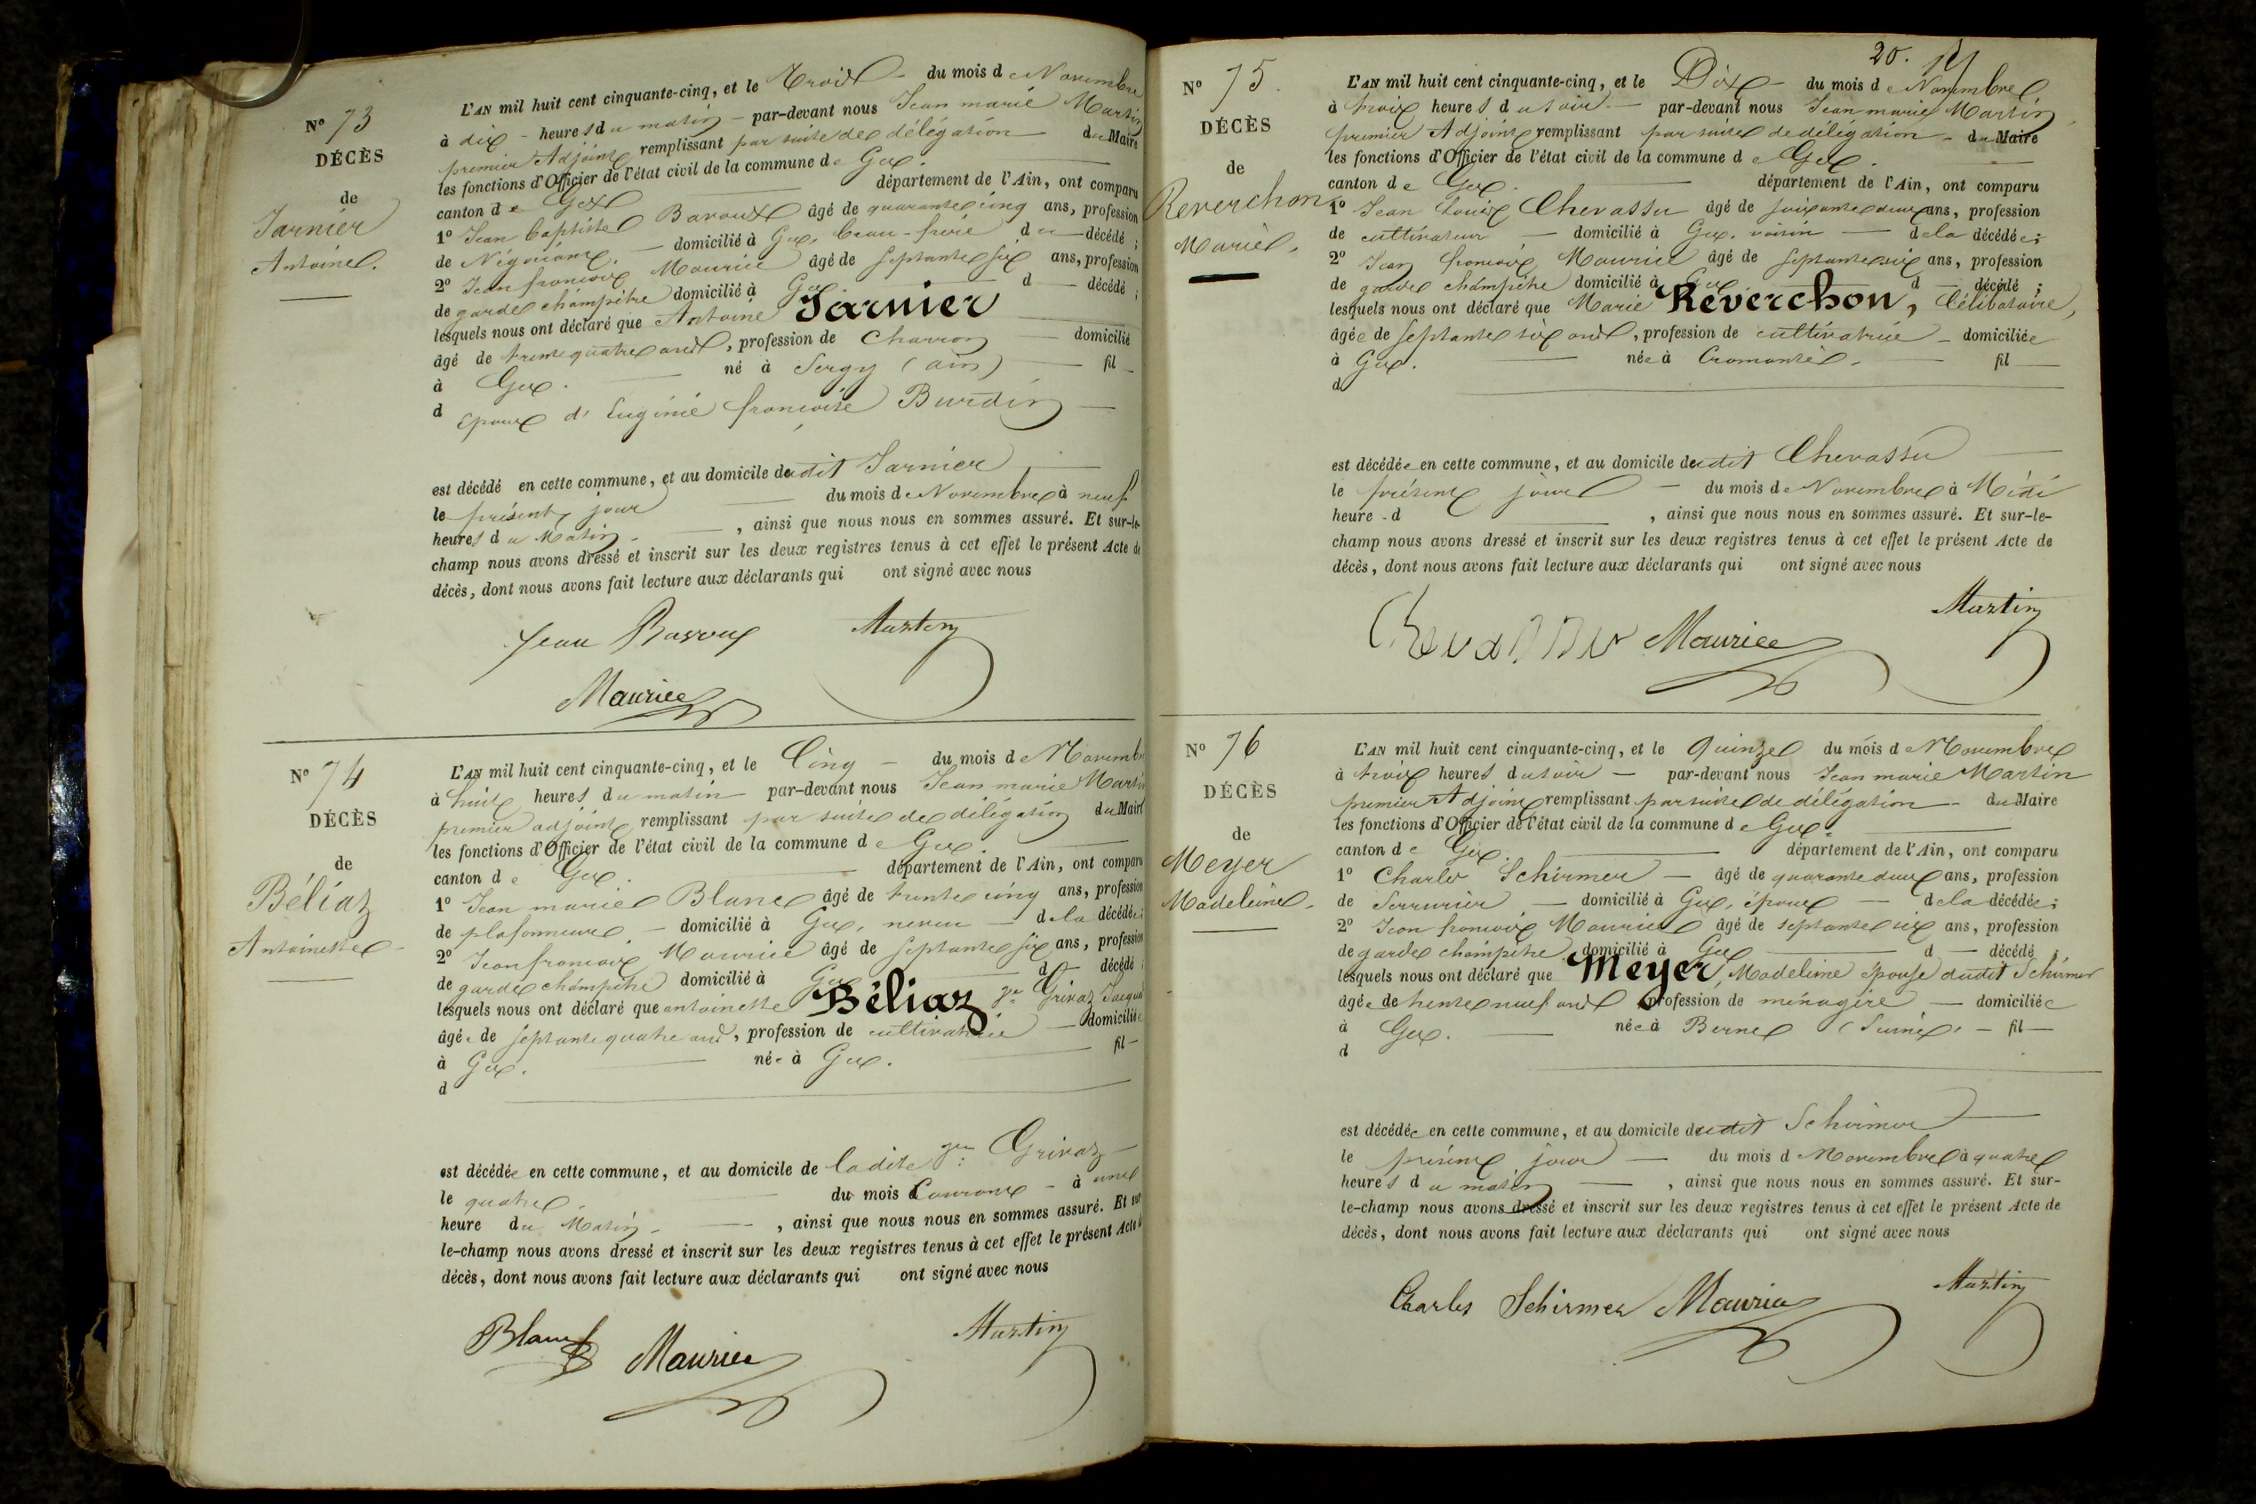 N° 73
DÉCÈS
de
Jarnier
Antoine.
L'AN mil huit cent cinquante-cinq, et le Trois du mois de Novembre
à dix heures du matin par-devant nous Jean marie Martin
premier Adjoint remplissant par suite de délégation du Maire
les fonctions d'Officier de l'état civil de la commune de Gex.
canton de Gex département de l'Ain, ont comparu
1° Jean baptiste Baroux âgé de quarante cinq ans, profession
de Négociant. domicilié à Gex, beau-frère du décédé;
2° Jean francois Maurice âgé de septante six ans, profession
de garde champêtre domicilié à Gex d décédé;
lesquels nous ont déclaré que Antoine Jarnier
âgé de trente quatre ans, profession de Charron domicilié
à Gex. né à Sergy (ain) fil
d Epoux d'Eugénie françoise Burdin
est décédé en cette commune, et au domicile dudit Jarnier
le présent jour du mois de Novembre à neuf
heures du Matin. , ainsi que nous nous en sommes assuré. Et sur-le-
champ nous avons dressé et inscrit sur les deux registres tenus à cet effet le présent Acte de
décès, dont nous avons fait lecture aux déclarants qui ont signé avec nous
Jean Baroux Martin
Maurice
N° 74
DÉCÈS
de
Béliaz
Antoinette
L'AN mil huit cent cinquante-cinq, et le Cinq du mois de Novembre
à huit heures du matin par-devant nous Jean marie Martin
premier adjoint remplissant par suite de délégation du Maire
les fonctions d'Officier de l'état civil de la commune de Gex.
canton de Gex. département de l'Ain, ont comparu
1° Jean marie Blanc âgé de trente cinq ans, profession
de plafonneur domicilié à Gex, neveu de la décédée;
2° Jean francois Maurice âgé de septante six ans, profession
de garde champêtre domicilié à Gex d décédé;
lesquels nous ont déclaré que antoinette Béliaz Vve Grivaz Jacques
âgée de septante quatre ans, profession de cultivatrice domiciliée
à Gex. née à Gex. fil
d
est décédée en cette commune, et au domicile de ladite Vve Grivaz
le quatre du mois Courant à une
heure du Matin , ainsi que nous nous en sommes assuré. Et sur-
le-champ nous avons dressé et inscrit sur les deux registres tenus à cet effet le présent Acte de
décès, dont nous avons fait lecture aux déclarants qui ont signé avec nous
Blanc Maurice Martin
20.
N° 75.
DÉCÈS
de
Reverchon
Marie.
L'AN mil huit cent cinquante-cinq, et le Dix du mois de Novembre
à trois heures du soir par-devant nous Jean marie Martin
premier Adjoint remplissant par suite de délégation du Maire
les fonctions d'Officier de l'état civil de la commune de Gex.
canton de Gex. département de l'Ain, ont comparu
1° Jean Louis Chevassu âgé de soixante deux ans, profession
de cultivateur domicilié à Gex. voisin de la décédée;
2° Jean francois Maurice âgé de septante six ans, profession
de garde champêtre domicilié à Gex d décédé;
lesquels nous ont déclaré que Marie Reverchon, Célibataire,
âgée de septante six ans, profession de cultivatrice domiciliée
à Gex. née à Cromanté. fil
d
est décédée en cette commune, et au domicile dudit Chevassu
le présent jour du mois de Novembre à Midi
heure d , ainsi que nous nous en sommes assuré. Et sur-le-
champ nous avons dressé et inscrit sur les deux registres tenus à cet effet le présent Acte de
décès, dont nous avons fait lecture aux déclarants qui ont signé avec nous
Martin
Chevassu Maurice
N° 76
DÉCÈS
de
Meyer
Madeleine.
L'AN mil huit cent cinquante-cinq, et le quinze du mois de Novembre
à trois heures du soir par-devant nous Jean marie Martin
premier Adjoint remplissant par suite de délégation du Maire
les fonctions d'Officier de l'état civil de la commune de Gex.
canton de Gex. département de l'Ain, ont comparu
1° Charles Schirmer âgé de quarante deux ans, profession
de Serrurier domicilié à Gex, époux de la décédée;
2° Jean francois Maurice âgé de septante six ans, profession
de garde champêtre domicilié à Gex d décédé;
lesquels nous ont déclaré que Meyer, Madeleine épouse dudit Schirmer
âgée de trente neuf ans profession de ménagère domiciliée
à Gex. née à Berne (Suisse). fil
d
est décédée en cette commune, et au domicile dudit Schirmer
le présent jour du mois de Novembre à quatre
heures du matin , ainsi que nous nous en sommes assuré. Et sur-
le-champ nous avons dressé et inscrit sur les deux registres tenus à cet effet le présent Acte de
décès, dont nous avons fait lecture aux déclarants qui ont signé avec nous
Charles Schirmer Maurice Martin